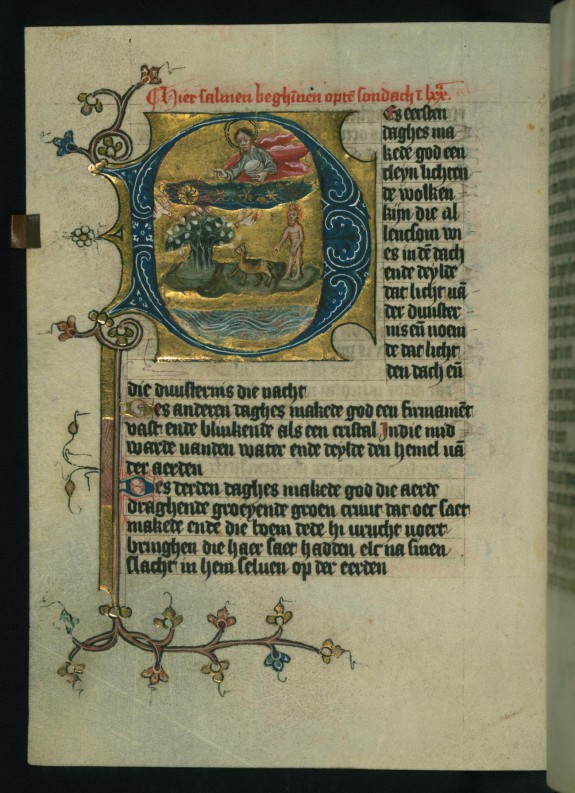 Hier salmen beghīnen opтē sondach ī lxx.
Es eersten
daghes ma
kede god een
cleyn lichten
de wolken
kijn die al
lencsom wi
es in dē dach
ende deylde
dat licht uā
der dunster
nis eñ noem
de dat licht
den dach eñ
die dunsternis die nacht
Des anderen daghes makede god een firmamēt
vast ende blinkende als een cristal Indie mid
warde vanden water ende deylde den hemel uā
der aerden
Des derden daghes makede god die aerde
draghende groeyende groen cruut dat oec saet
makede ende die boem dede hi vrucht voert
bringhen die haer saet hadden elc na sinen
slacht in hem seluen op der eerden